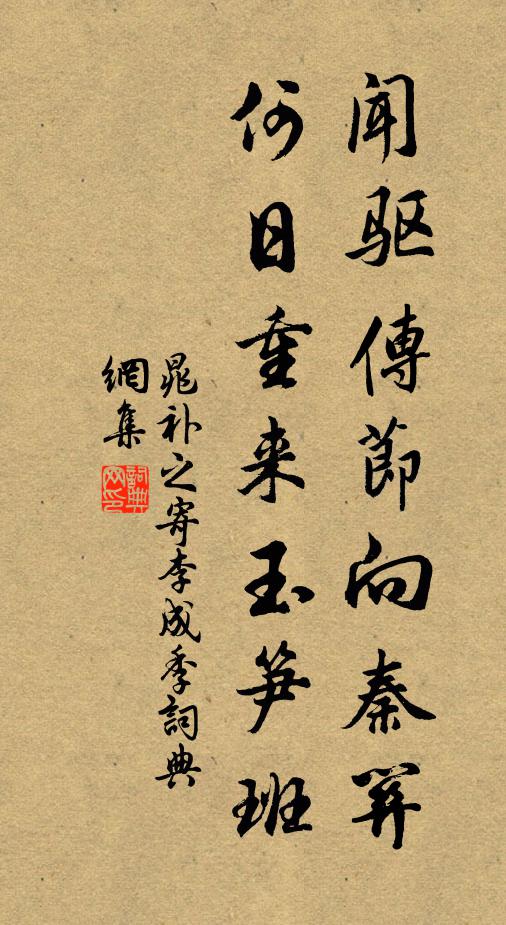 闻驱傳節向秦關
何日重来玉笋班
晁补之寄李成季詞典
網集
詞典